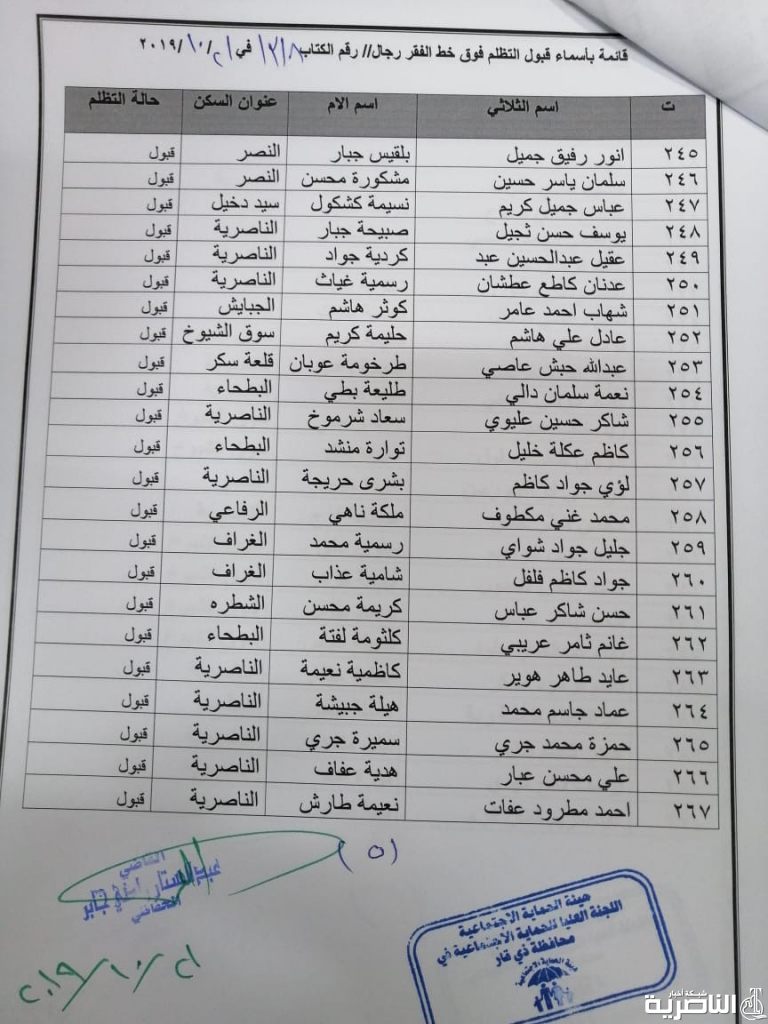 قائمة بأسماء قبول التظلم فوق خط الفقر رجال// رقم الكتاب ١٣١٨ في ٢١/١٠/٢٠١٩
ت اسم الثلاثي اسم الام عنوان السكن حالة التظلم
٢٤٥ انور رفيق جميل بلقيس جبار النصر قبول
٢٤٦ سلمان ياسر حسين مشكورة محسن النصر قبول
٢٤٧ عباس جميل كريم نسيمة كشكول سيد دخيل قبول
٢٤٨ يوسف حسن ثجيل صبيحة جبار الناصرية قبول
٢٤٩ عقيل عبدالحسين عبد كردية جواد الناصرية قبول
٢٥٠ عدنان كاطع عطشان رسمية غياث الناصرية قبول
٢٥١ شهاب احمد عامر كوثر هاشم الجبايش قبول
٢٥٢ عادل علي هاشم حليمة كريم سوق الشيوخ قبول
٢٥٣ عبدالله حبش عاصي طرخومة عوبان قلعة سكر قبول
٢٥٤ نعمة سلمان دالي طليعة بطي البطحاء قبول
٢٥٥ شاكر حسين عليوي سعاد شرموخ الناصرية قبول
٢٥٦ كاظم عكلة خليل توارة منشد البطحاء قبول
٢٥٧ لؤي جواد كاظم بشرى حريجة الناصرية قبول
٢٥٨ محمد غني مكطوف ملكة ناهي الرفاعي قبول
٢٥٩ جليل جواد شواي رسمية محمد الغراف قبول
٢٦٠ جواد كاظم فلفل شامية عذاب الغراف قبول
٢٦١ حسن شاكر عباس كريمة محسن الشطره قبول
٢٦٢ غانم ثامر عريبي كلثومة لفتة البطحاء قبول
٢٦٣ عايد طاهر هوير كاظمية نعيمة الناصرية قبول
٢٦٤ عماد جاسم محمد هيلة جبيشة الناصرية قبول
٢٦٥ حمزة محمد جري سميرة جري الناصرية قبول
٢٦٦ علي محسن عبار هدية عفاف الناصرية قبول
٢٦٧ احمد مطرود عفات نعيمة طارش الناصرية قبول
(٥)
القاضي
عبدالستار جابر
٢١/١٠/٢٠١٩
هيئة الحماية الاجتماعية
اللجنة العليا للحماية الاجتماعية في
محافظة ذي قار
شبكة أخبار
الناصرية